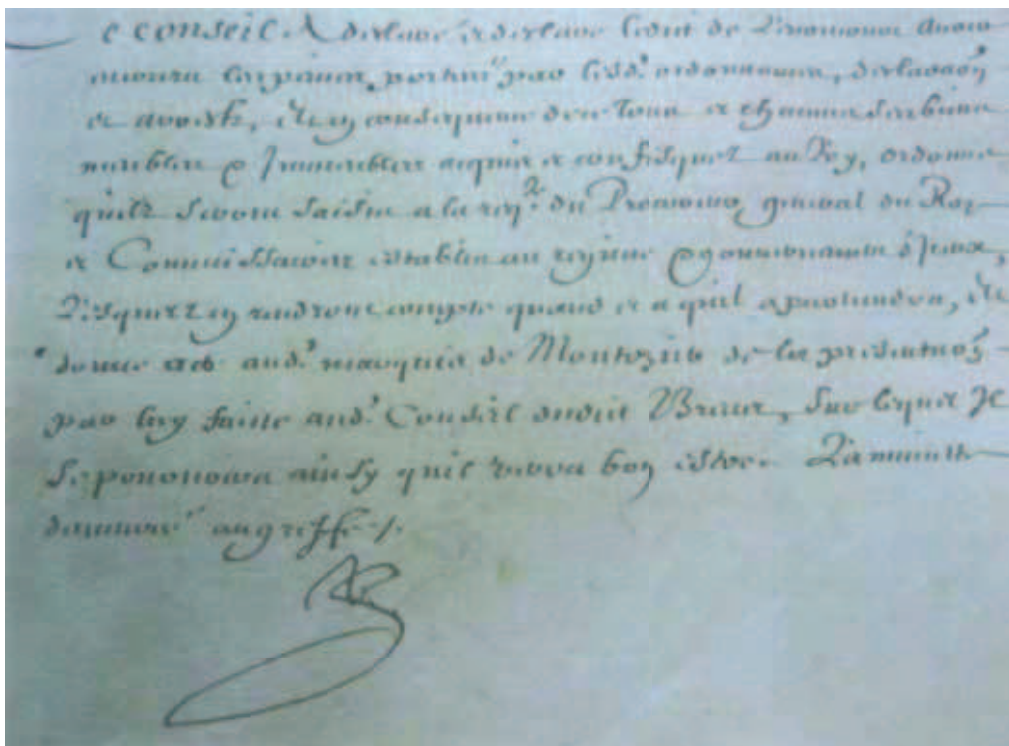 e conseil A declaré et declare led. de avoir
encouru les peines portées par lesd. ordonnances, declaraōn
et arrests, et en consequence tous et chacuns ses biens
meubles et Immeubles acquis et confisquez au Roy, ordonne
quilz seront saisis a la req. du Procureur general du Roy
et Commissaires establis au regime et gouvernement d'Iceux,
Lesquelz en rendront compte quand et a quil apartiendra, et
donne acte aud. marquis de Montezu de la presentaōn
par luy faite aud. Conseil dudit Sur lequel Je
se pourvoira ainsy quil verra bon estre. La minutte
demeure au greffe /.